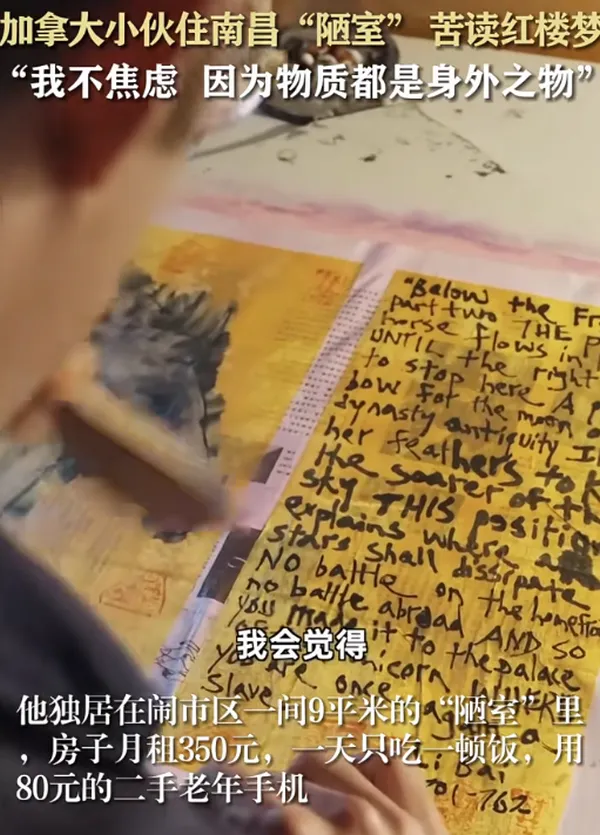 加拿大小伙住南昌“陋室” 苦读红楼梦
“我不焦虑 因为物质都是身外之物”
"Below the Fr
part two THE P
horse flows in
UNTIL the right
to stop here A
bow for the moon
dynasty antiquity I
her feathers to
the soarer of the
sky THIS position
explains where
stars shall dissipate
NO battle on the homefro
no battle abroad AND so
you made it to the palace
you are unicorn
slave once again a
Li Bai
701-762
我会觉得
他独居在闹市区一间9平米的“陋室”里
，房子月租350元，一天只吃一顿饭，用
80元的二手老年手机